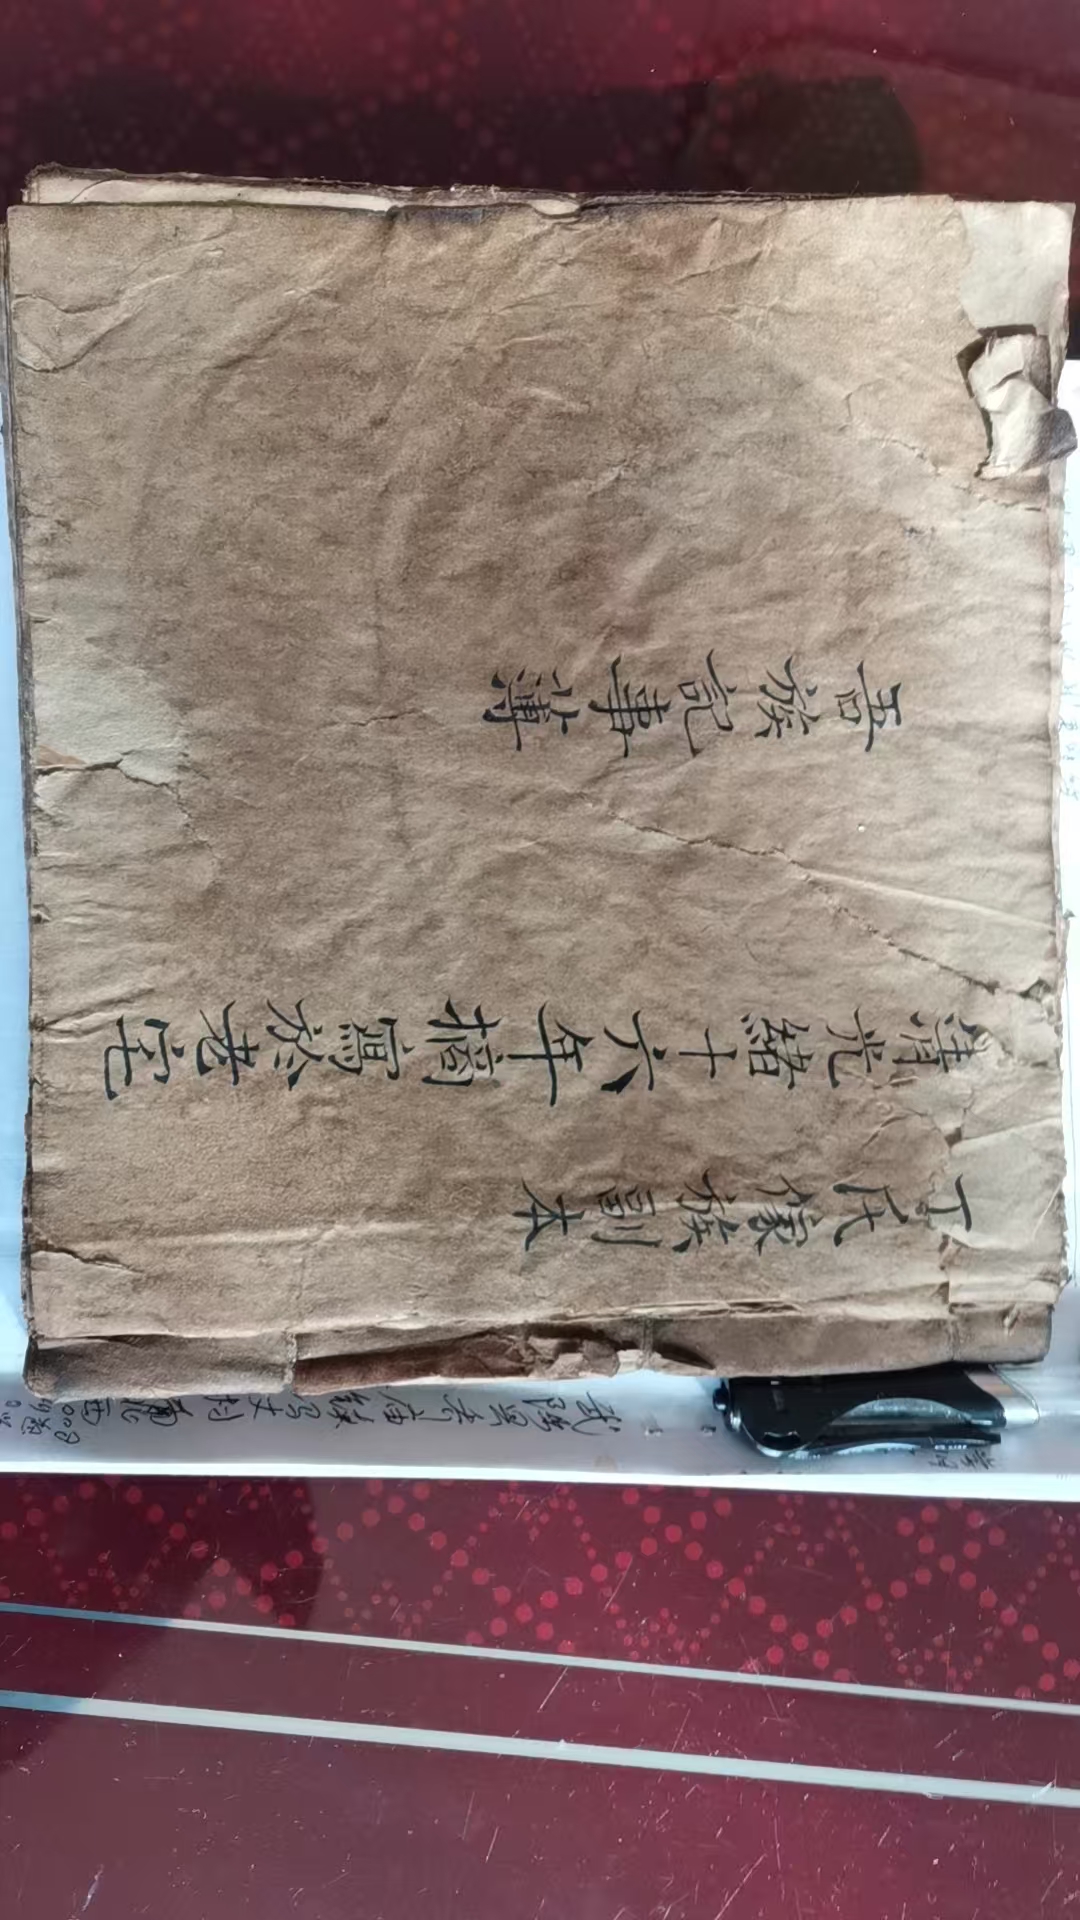 丁氏傢族副本
清光緒十六年摘寫於老宅
吾族記事簿